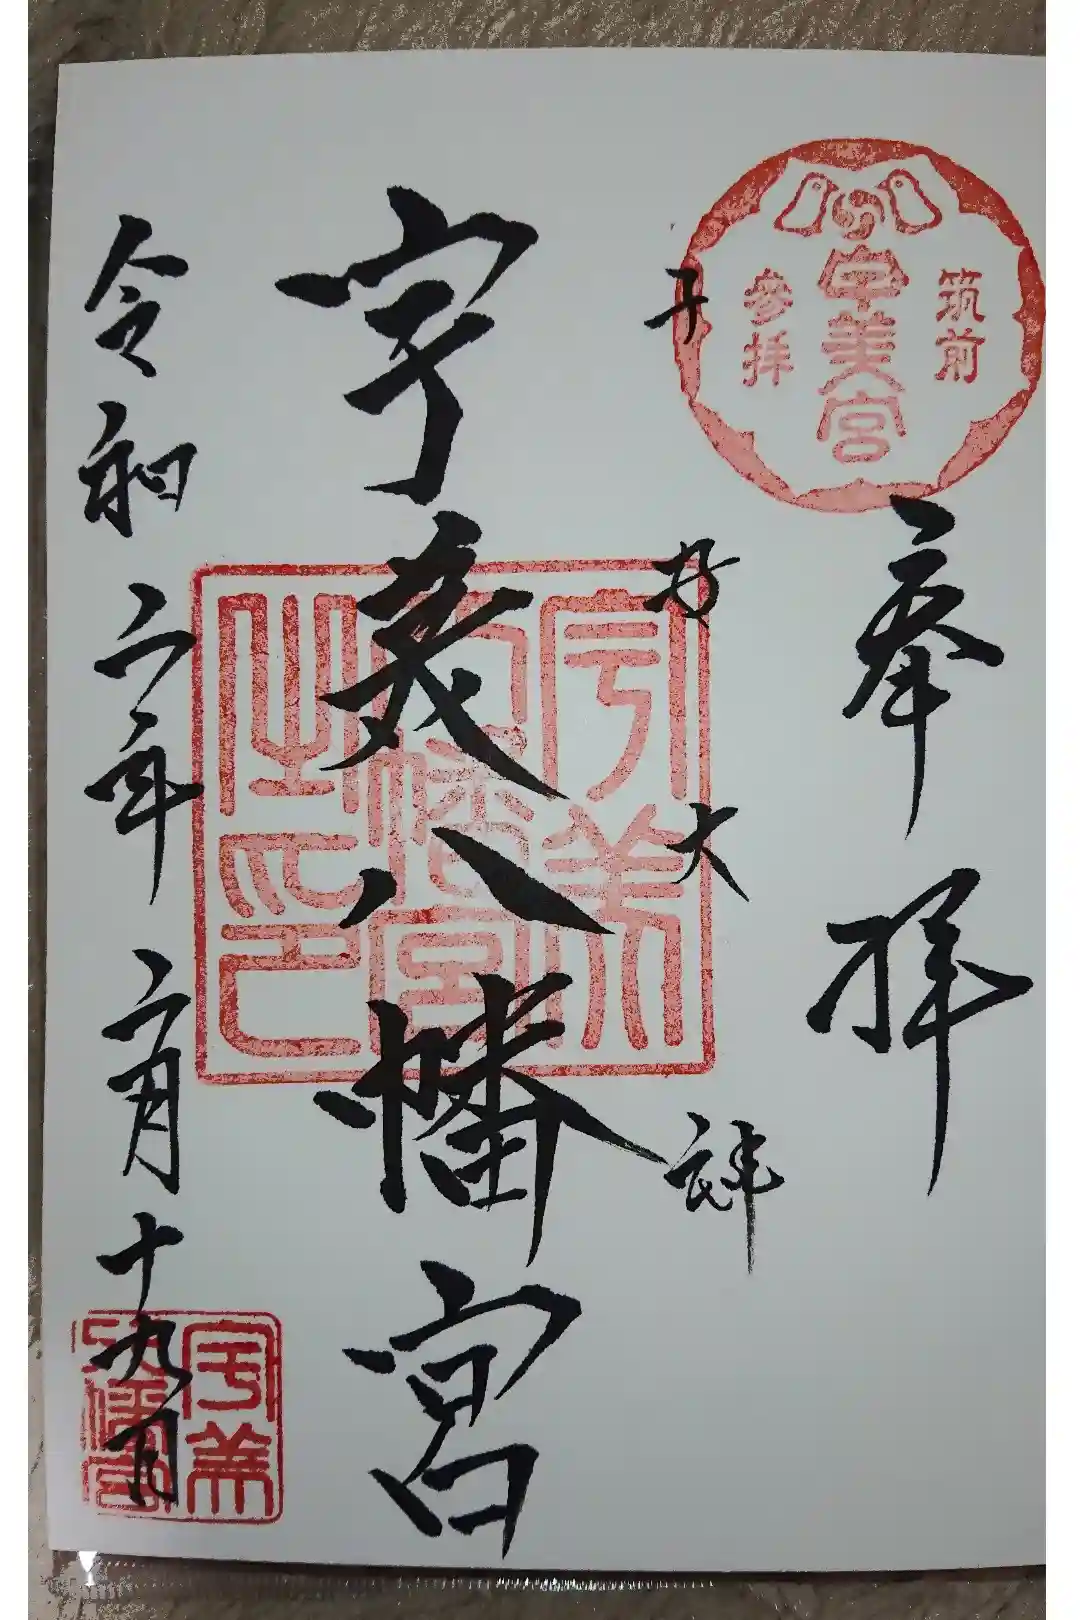 筑前
宇美宮
參拝
奉拝
子安大神
宇美八幡宮
宇美
八幡宮
之印
令和二年二月十九日
宇美
八幡宮